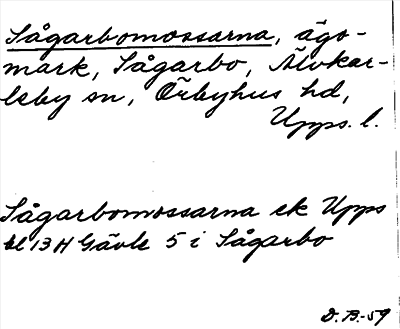 Sågarbomossarna, ägo-
mark, Sågarbo, Älvkar-
leby sn, Örbyhus hd,
Upps. l.
Sågarbomossarna ek Upps
bl 13 H Gävle 5 i Sågarbo
D. B.-59